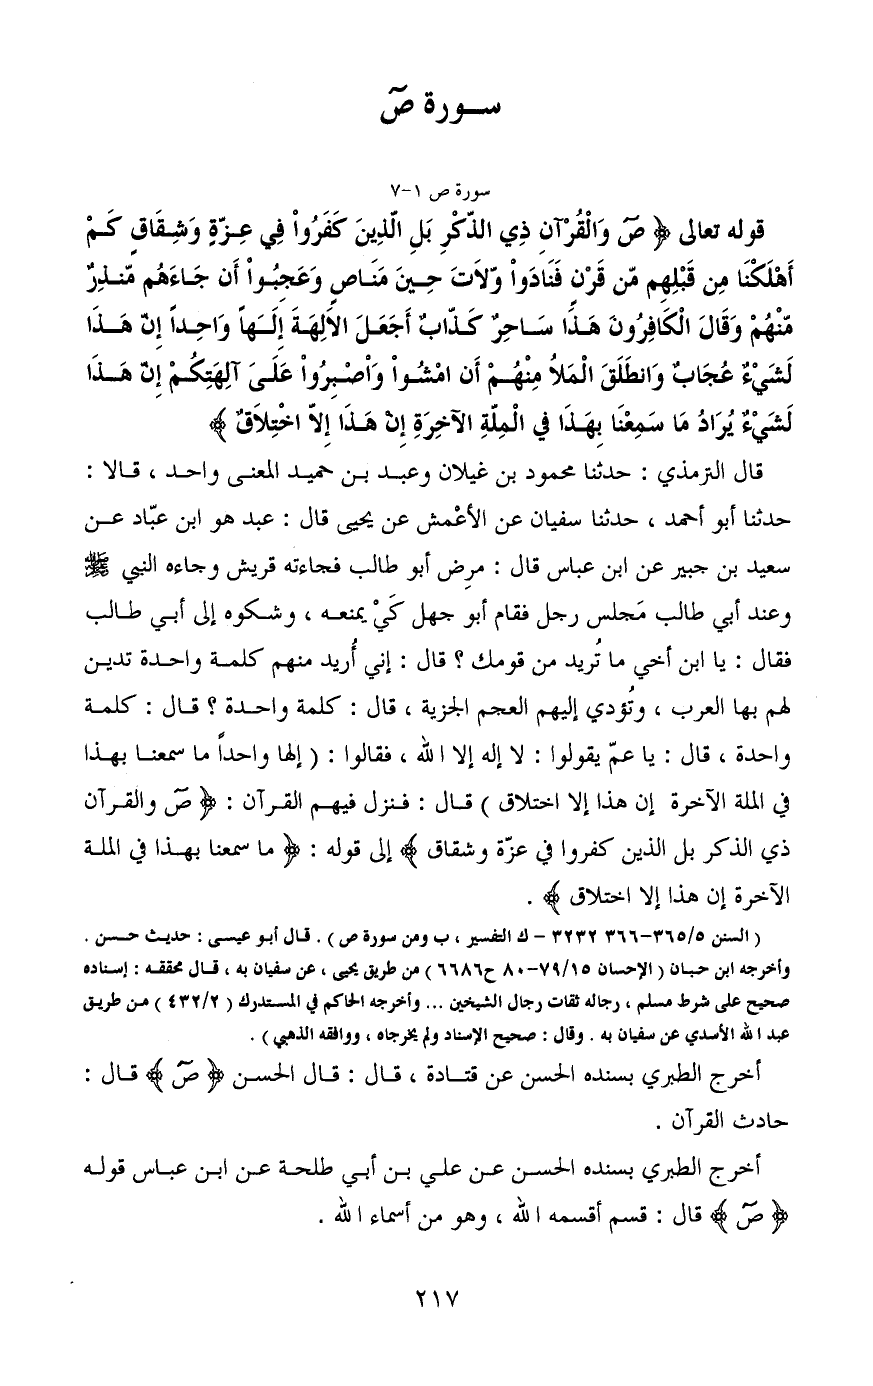 سورة صٓ
سورة ص ١-٧
قوله تعالى ﴿ صٓ وَالْقُرْآنِ ذِي الذّكْرِ بَلِ الّذِينَ كَفَرُواْ فِي عِزّةٍ وَشِقَاقٍ كَمْ
أَهْلَكْنَا مِن قَبْلِهِم مّن قَرْنٍ فَنَادَواْ وّلاَتَ حِينَ مَنَاصٍ وَعَجِبُواْ أَن جَاءَهُم مّنذِرٌ
مّنْهُمْ وَقَالَ الْكَافِرُونَ هَذَا سَاحِرٌ كَذّابٌ أَجَعَلَ الاَلِهَةَ إِلَهاً وَاحِداً إِنّ هَذَا
لَشَيْءٌ عُجَابٌ وَانطَلَقَ الْمَلأُ مِنْهُمْ أَن امْشُواْ وَاْصْبِرُواْ عَلَىَ آلِهَتِكُمْ إِنّ هَذَا
لَشَيْءٌ يُرَادُ مَا سَمِعْنَا بِهَذَا فِي الْمِلّةِ الاَخِرَةِ إِنْ هَذَا إِلاّ اخْتِلاَقٌ ﴾
قال الترمذي : حدثنا محمود بن غيلان وعبد بن حميد المعنى واحد ، قالا :
حدثنا أبو أحمد ، حدثنا سفيان عن الأعْمش عن يحيى قال : عبد هو ابن عبّاد عن
سعيد بن جبير عن ابن عباس قال : مرِض أبو طالب فجاءته قريش وجاءه النبي ﷺ
وعند أبي طالب مَجلس رجل فقام أبو جهل كَيْ يمنعه ، وشكوه إلى أبي طالب
فقال : يا ابن أخي ما تُريد من قومك ؟ قال : إني أُريد منهم كلمة واحدة تدين
لهم بها العرب ، وتُؤدي إليهم العجم الجزية ، قال : كلمة واحدة ؟ قال : كلمة
واحدة ، قال : يا عمّ يقولوا : لا إله إلا الله ، فقالوا : ( إلها واحداً ما سمعنا بهذا
في الملة الآخرة إن هذا إلا اختلاق ) قال : فنزل فيهم القرآن : ﴿ صٓ والقرآن
ذي الذكر بل الذين كفروا في عزّة وشقاق ﴾ إلى قوله : ﴿ ما سمعنا بهذا في الملة
الآخرة إن هذا إلا اختلاق ﴾ .
( السنن ٣٦٥/٥-٣٦٦ ٣٢٣٢ - ك التفسير ، ب ومن سورة ص ) . قال أبو عيسى : حديث حسن .
وأخرجه ابن حبان ( الإحسان ٧٩/١٥-٨٠ ح٦٦٨٦ ) من طريق يحيى ، عن سفيان به ، قال محققه : إسناده
صحيح على شرط مسلم ، رجاله ثقات رجال الشيخين ... وأخرجه الحاكم في المستدرك ( ٤٣٢/٢ ) من طريق
عبد الله الأسدي عن سفيان به . وقال : صحيح الإسناد ولم يخرجاه ، ووافقه الذهبي ) .
أخرج الطبري بسنده الحسن عن قتادة ، قال : قال الحسن ﴿ صٓ ﴾ قال :
حادث القرآن .
أخرج الطبري بسنده الحسن عن علي بن أبي طلحة عن ابن عباس قوله
﴿ صٓ ﴾ قال : قسم أقسمه الله ، وهو من أسماء الله .
٢١٧